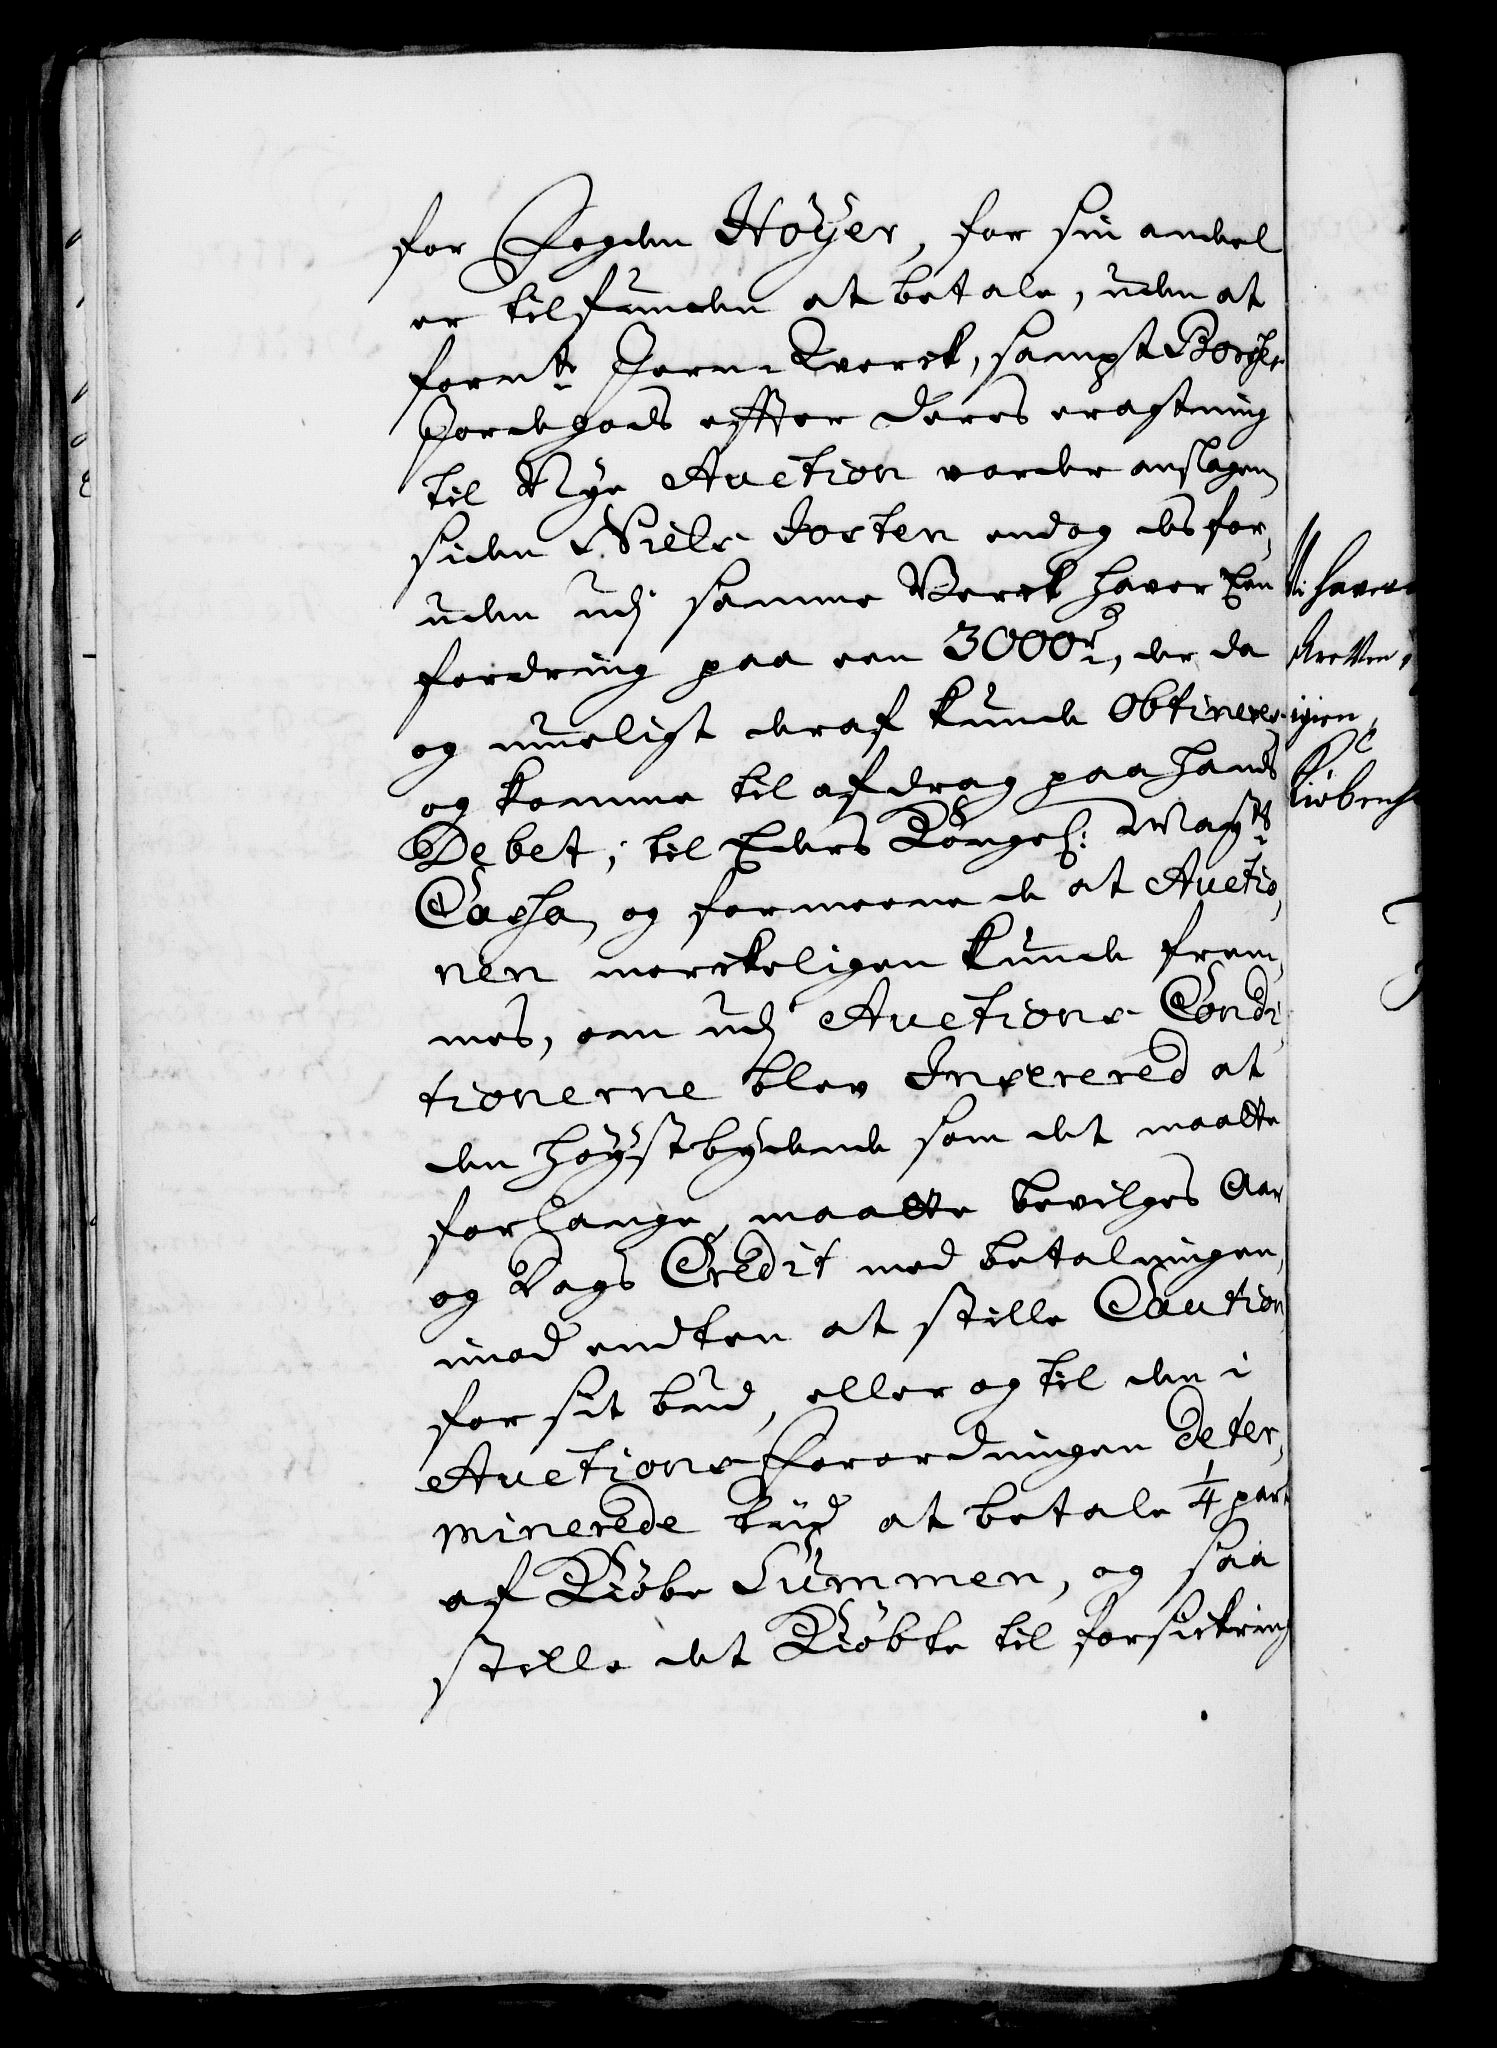 for Fogden Höÿer, for sin andeel
er tilfunden at betale, uden at
formte Jern-Werck, sampt Borges
Jordegods efter deres eragtning
til Nye Auction vorder anslagen
siden Niels Josten endog desfor,
uden udj samme Werck haver Een
fordring paa een 3000 rd, der da
og mueligt deraf kunde obtineres
og komme til afdrag paa hands
Debet, til Eders Kongel: Mayts
Cassa, og formeene de at Auctio,
nen merckeligen kunde frem,
mes, om udj Auctions Condi,
tionerne blev Inserered at
den höÿstbÿdende som det maatte
forlange, maatte bevilges Aar
og Dags Credit med betalningen,
imod endten at stille Caution
for sit bud, eller og til den i
Auctions Forordningen deter,
minerede tiid at betale 1/4 part
af Kiöbe Summen, og saa
stille det Kiöbte til forsickring